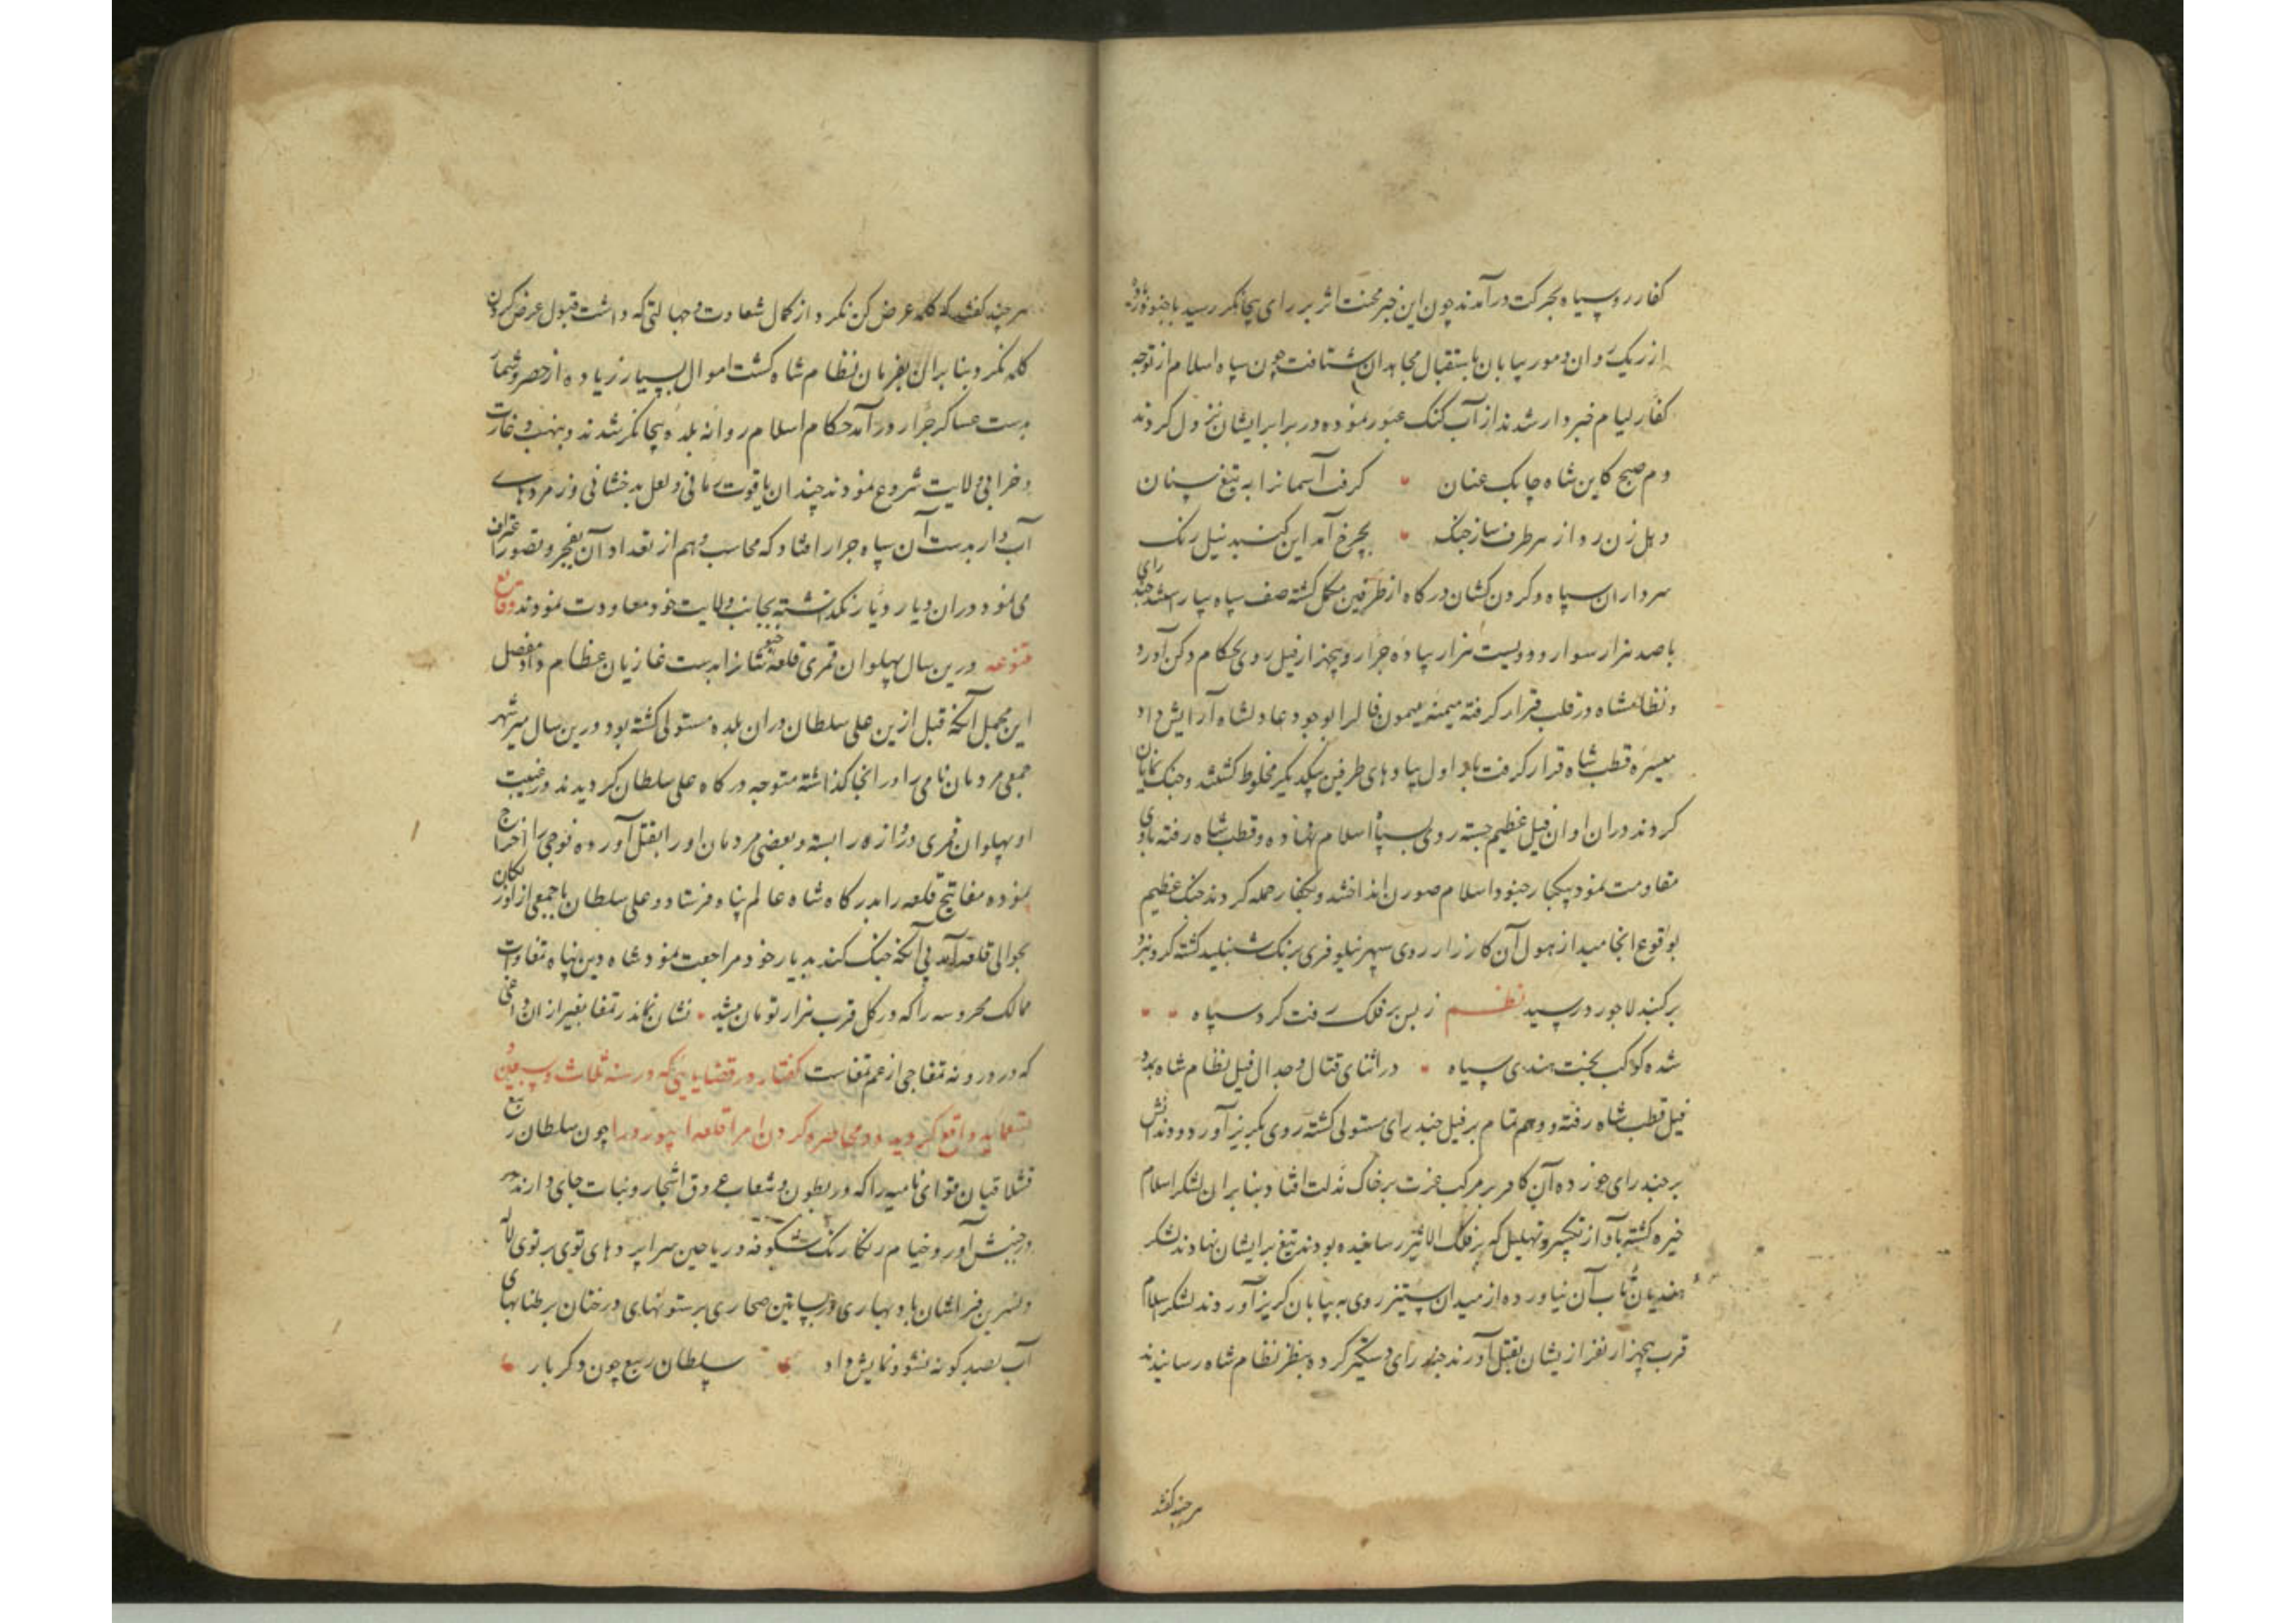 کفار روسیاه بحرکت درآمدند چون این خبر محنت اثر بر رای بیجانگر رسید با جنود
از ریک روان و مور بیابان باستقبال مجاهدان شتافت چون سپاه اسلام از توجه
کفار لیام خبردار شدند از آب کنک عبور نموده در برابر ایشان نزول کردند
دم صبح کاین شاه چابک عنان کرفت آسمانرا به تیغ سنان
دهل زن زد از هر طرف ساز جنک بچرخ آمد این کنبد نیل رنک
سرداران سپاه و کردن کشان درکاه از طرفین مکمل کشته صف سپاه بیاراستند رای
با صد هزار سوار و دویست هزار پیاده جرار و پنجهزار فیل روی بحکام دکن آورد
و نظامشاه در قلب قرار کرفته میمنه میمون فال را بوجود عادلشاه آرایش داد
میسره قطب شاه قرار کرفت اول پیادهای طرفین بیکدیکر مخلوط کشتند و جنک نمایان
کردند در آن اوان فیل عظیم جسته روی بسپاه اسلام نهاده و قطب شاه رفته باوی
مقاومت نمود بیکبار جنود اسلام صورن انداختند و بکفار حمله کردند جنک عظیم
بوقوع انجامید از هول آن کارزار روی سپهر نیلوفری برنک شنبلید کشته کرد نبرد
بر کنبد لاجورد رسید نظم ز بس بر فلک رفت کرد سپاه
شده کوکب بخت هندی سیاه در اثنای قتال و جدال فیل نظام شاه بدو
فیل قطب شاه رفته و وهم تمام بر فیل جنبد رای مستولی کشته روی بکریز آورد و دندانش
بر جنبد رای خورده آن کافر بر مرکب عزت بر خاک مذلت افتاد بنابران لشکر اسلام
خیره کشته آواز تکبیر و تهلیل که بر فلک الاثیر رسانیده بودند تیغ بر ایشان نهادند لشکر
هندیان تاب آن نیاورده از میدان ستیز روی به بیابان کریز آوردند لشکر اسلام
قرب پنجهزار نفر از یشان بقتل آورند جنبد رای دستکیر کرده بنظر نظام شاه رسانیدند
هر چند کفتند
هر چند کفتند که کلمه عرض کن نکرد از کمال شقاوت و جهالتی که داشت قبول عرض کردن
کلمه نکرد بنابران بفرمان نظام شاه کشت اموال بسیار زیاده از حصر و شمار
بدست عساکر جرار درآمد حکام اسلام روانه بلده بیجانکر شدند و بنهب و غارت
و خرابی ولایت شروع نمودند چندان یاقوت رمانی و لعل بدخشانی و زمردهای
آب دار بدست آن سپاه جرار افتاد که محاسب وهم از تعداد آن بعجز و قصور اعتراف
می نمود در آن دیار دیار نکذاشته بجانب ولایت خود معاودت نمودند وقایع
متنوعه درین سال پهلوان قمری قلعه را بدست غازیان عظام داد مفصل
این مجمل آنکه قبل ازین علی سلطان در آن بلده مستولی کشته بود درین سال
جمعی مردمان نامی را در آنجا کذاشته متوجه درکاه علی سلطان کردیدند در غیبت
او پهلوان قمری دروازه را بسته و بعضی مردمان او را بقتل آورده فوجی را اخراج
نموده مفاتیح قلعه را بدرکاه شاه عالم پناه فرستاد و علی سلطان با جمعی از اوزبکان
بحوالی قلعه آمد بی آنکه جنک کند بدیار خود مراجعت نمود شاه دین پناه تمغاوات
ممالک محروسه را که در کل قرب هزار تومان میشد نشان نماند ز تمغا بغیر از آن داغی
که در درونه تمغاجی از غم تمغاست کفتار در قضایایی که در سنه ثلاث و سبعین
تسعمایه واقع کردید و محاصره کردن امرا قلعه ابیورد را چون سلطان ربیع
قشلاقیان قوای نامیه را که در بطون و شعاب عروق اشجار و نبات جای دارند
در جنبش آورد و خیام رنکارنک شکوفه و ریاحین سراپردهای توی بر توی لاله
و نسرین فراشان باد بهاری در بساتین صحاری بر ستونهای درختان بر طنابهای
آب بصد کونه نشو و نمایش داد سلطان ربیع چون دکر بار